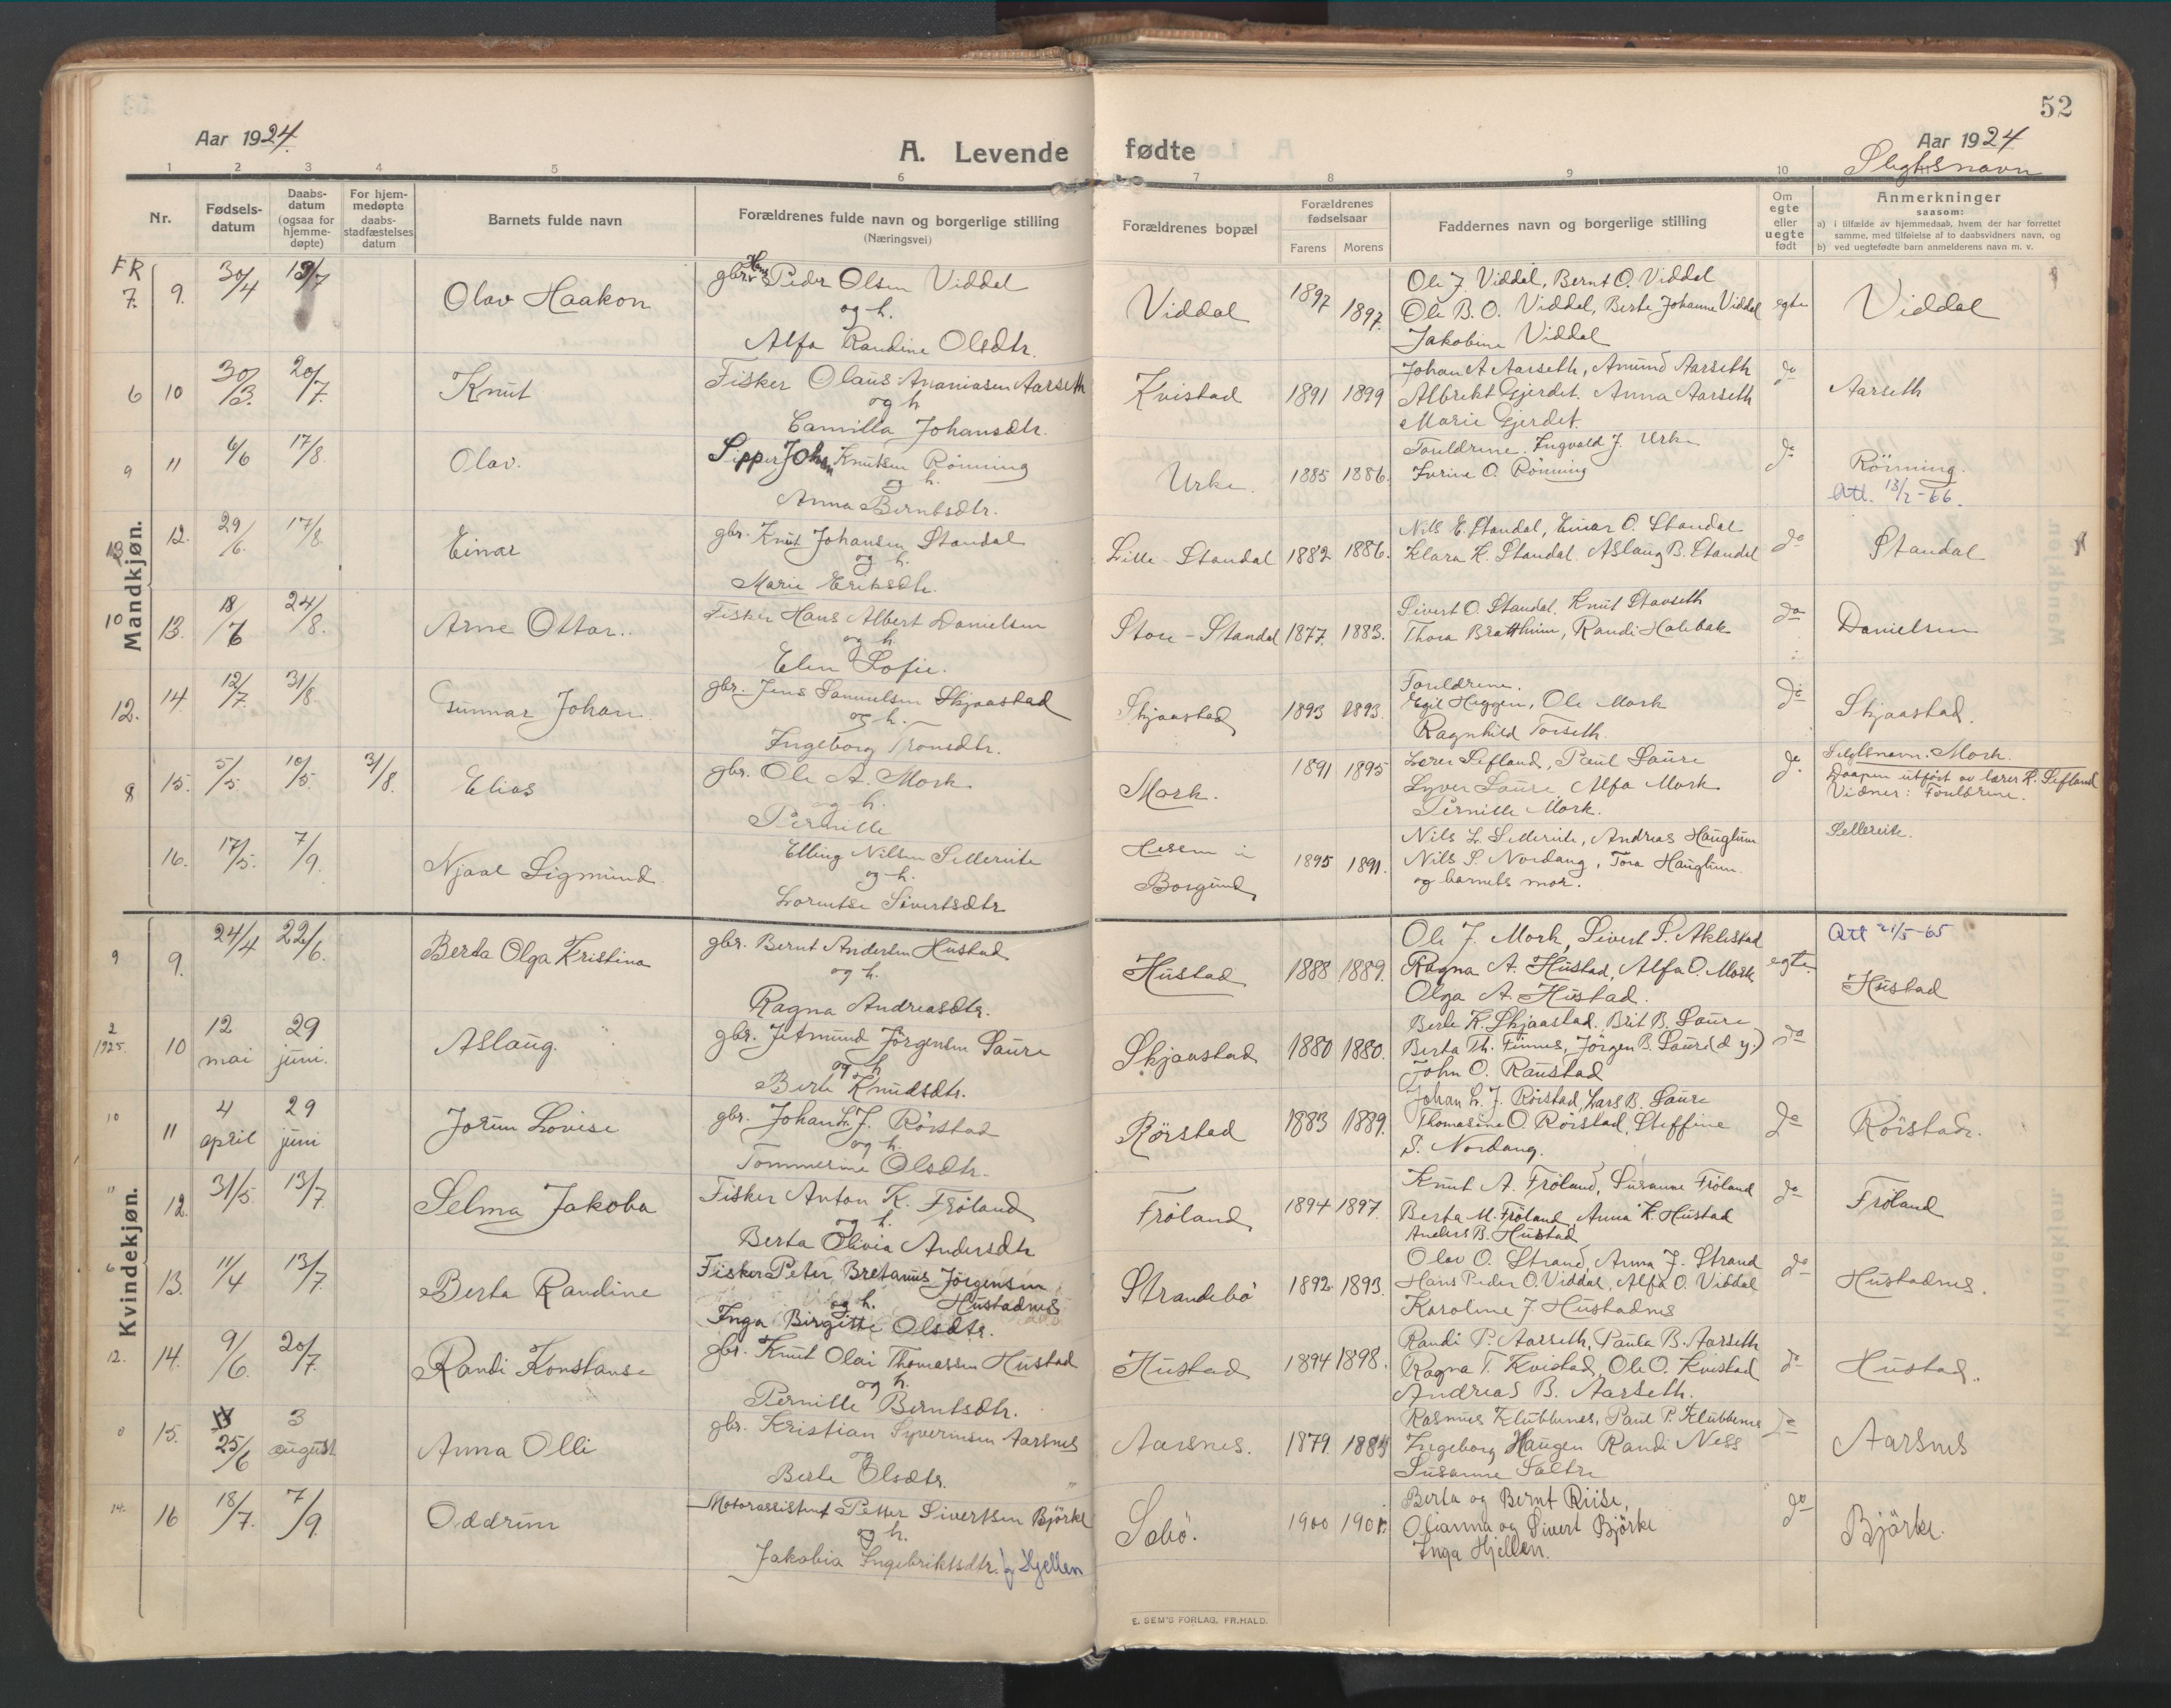 52
Aar 1924.
A. Levende
fødte
Aar 1924
Slegtsnavn
1 2 3 4 5 6 7 8 9 10
Nr.
Fødsels-
datum
Daabs-
datum
(ogsaa for
hjemme-
døpte)
For hjem-
medøpte
daabs-
stadfæstelses
datum
Barnets fulde navn
Forældrenes fulde navn og borgerlige stilling
(Næringsvei)
Forældrenes bopæl
Forældrenes
fødselsaar
Farens Morens
Faddernes navn og borgerlige stilling
Om
egte
eller
uegte
født
Anmerkninger
saasom:
a) i tilfælde av hjemmedaab, hvem der har forrettet
samme, med tilføielse af to daabsvidners navn, og
b) ved uegtefødte barn anmelderens navn m. v.
Mandkjøn.
FR
7. 9. 30/4 13/7
Olav Haakon
gbr. Hans Peder Olsen Viddal
og h.
Alfa Randine Olsdtr.
Viddal 1897 1897.
Ole J. Viddal, Bernt O. Viddal
Ole B. O. Viddal, Berte Johanne Viddal
Jakobine Viddal
egte
Viddal
6 10 30/3. 20/7.
Knut
Fisker Olaus Ananiasen Aarseth
og h
Camilla Johansdtr.
Kvistad 1891 1899
Johan A Aarseth, Amund Aarseth
Albrekt Gjerdet. Anna Aarseth
Marie Gjerdet.
do
Aarseth
9 11 6/6 17/8
Olav.
Skipper Johan Knutsen Rönning
og h.
Anna Berntsdtr.
Urke. 1885 1886.
Foreldrene. Ingvald J. Urke
O. Rönning
do
Rönning.
Att. 13/2-66.
13 12. 29/6. 17/8
Einar
gbr. Knut Johansen Standal
og h.
Marie Eriksdtr.
Lille-Standal 1882 1886.
Nils E. Standal, Einar O. Standal
Klara K. Standal. Aslaug B. Standal
do
Standal
10 13. 18/6 24/8.
Arne Ottar.
Fisker Hans Albert Danielsen
og h
Elen Sofie.
Store-Standal 1877. 1883.
Sivert O. Standal. Knut Stavseth
Thora Bratthein, Randi Holebak
do
Danielsen
12. 14. 12/7. 31/8.
Gunnar Johan
gbr. Jens Samuelsen Skjaastad
og h.
Ingeborg Tronsdtr.
Skjaastad 1893 1893.
Foreldrene.
Egil Heggen, Ole Mork
Ragnhild Torseth.
do
Skjaastad.
8 15. 5/5. 10/5. 31/8.
Elias
gbr. Ole A. Mork
og h.
Pernille
Mork. 1891 1895
Lærer Sefland, Paul Saure
Syver Saure, Alfa Mork
Pernille Mork.
do
Slegtsnavn. Mork.
Daapen utført av lærer K. Sefland
Vidner: Foreldrene.
16. 17/5. 7/9.
Njaal Sigmund
Elling Nilsen Sellereite
og h.
Lorentse Sivertsdtr
Hessen i
Borgund
1895 1891.
Nils L. Sellereite, Andreas Hauglum
Nils S. Nordang, Tora Hauglum.
og barnets mor.
Sellereite.
Kvindekjøn.
9 9. 24/4 22/6.
Berta Olga Kristina
gbr. Bernt Andersen Hustad
og h.
Ragna Andreasdtr.
Hustad 1888 1889.
Ole J. Mork, Sivert S. Aklestad
Ragna A. Hustad, Alfa O. Mork
Olga A. Hustad.
egte
Att 21/5-65
Hustad
2
1925. 10 12 mai 29 juni.
Aslaug.
gbr. Jetmund Jörgensen Saure
og h
Berte Knudsdtr.
Skjaastad 1880 1880.
Berte K. Skjaastad. Brit B. Saure
Berta Th. Finnes, Jörgen B. Saure (d y.)
John O. Raustad
do
10 11 4 april 29 juni
Jorun Lovise
gbr. Johan L. J. Rörstad
og h.
Tommerine Olsdtr.
Rörstad 1883 1889.
Johan L. J. Rörstad, Lars B. Saure
Thomasine O. Rörstad, Steffine
S. Nordang.
do
Rörstad.
" 12. 31/5. 13/7
Selma Jakoba
Fisker Anton K. Fröland
og h.
Berta Olivia Andersdtr
Fröland 1894 1897.
Knut A. Fröland, Susanne Fröland
Berta M. Fröland, Anna K. Hustad
Anders B. Hustad
do
Fröland
6 13. 11/4 13/7
Berta Randine
Fisker Peter Bretanus Jörgensen
og h. Hustadnes
Inga Birgitte Olsdtr.
Strandebö 1892 1893.
Olav O. Strand, Anna J. Strand
Hans Peder O. Viddal, Alfa O. Viddal
Karoline J. Hustadnes
do
Hustadnes.
12. 14. 9/6. 20/7.
Randi Konstanse
gbr. Knut Olai Thomassen Hustad
og h.
Pernille Berntsdtr.
Hustad 1894 1898.
Randi P. Aarseth, Paula B. Aarseth
Ragna T. Kvistad, Ole O. Kvistad
Andreas B. Aarseth.
do
Hustad.
15. 25/6 3 august
Anna Olli
gbr. Kristian Syverinsen Aarsnes
og
Berte Olsdtr.
Aarsnes. 1879. 1884
Rasmus Klubbenes, Paul P. Klubbenes
Ingeborg Haugen Randi Ness
Susanne Sætre
do
Aarsnes
14. 16 18/7. 7/9
Oddrun
Motorassistent Petter Sivertsen Björke
og h.
Jakobia Ingebriktsdtr. f. Hjellen
Sæbö. 1900 1901.
Berta og Bernt Riise,
Olianna og Sivert Björke
Inga Hjellen.
do
Björke.
E. SEM'S FORLAG, FR.HALD.